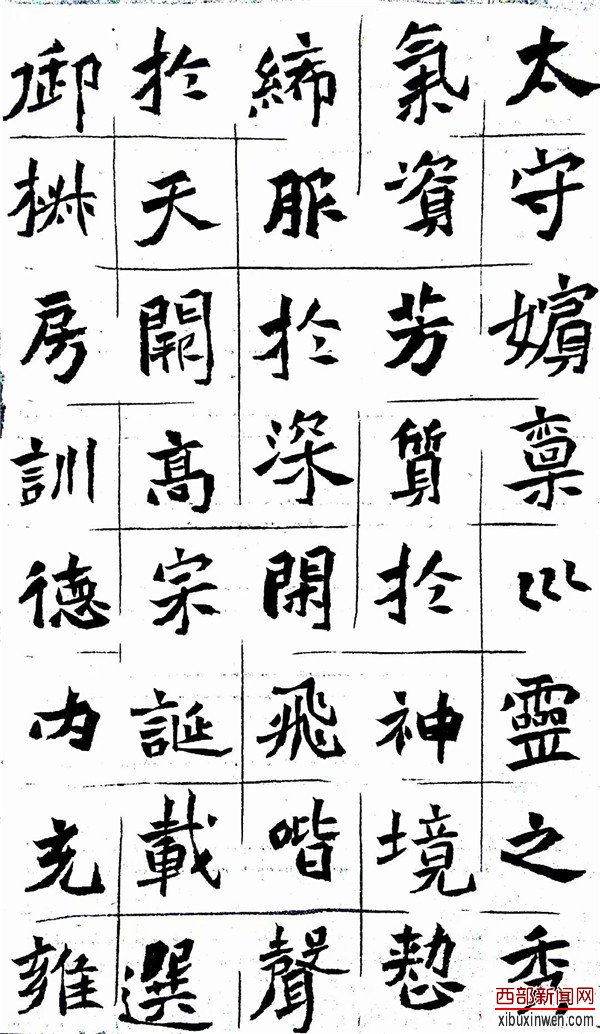 太守嬪稟巛靈之秀
氣資芳質於神境懃
締服於深閑飛喈聲
於天闕高宗誕載選
御椒房訓德內充雍
西部新闻网
xibuxinwen.com